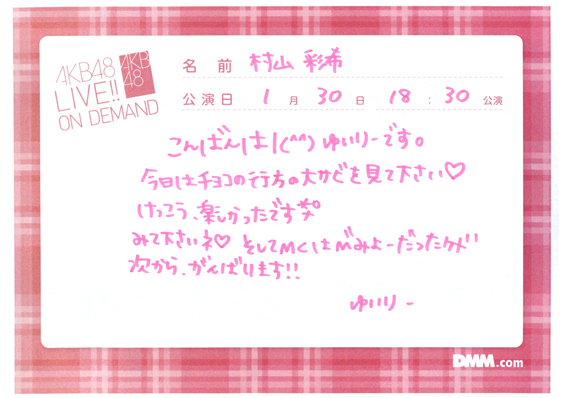 AKB48
LIVE!!
ON DEMAND
AKB
48
名前 村山 彩希
公演日 1月30日 18:30公演
こんばんは!(^^)ゆいりーです。
今日はチョコの行方の大サビを見て下さい♡
けっこう、楽しかったです
みて下さいネ♡ そしてMCはびみょーだったケド!!
次から、がんばります!!
ゆいりー
DMM.com